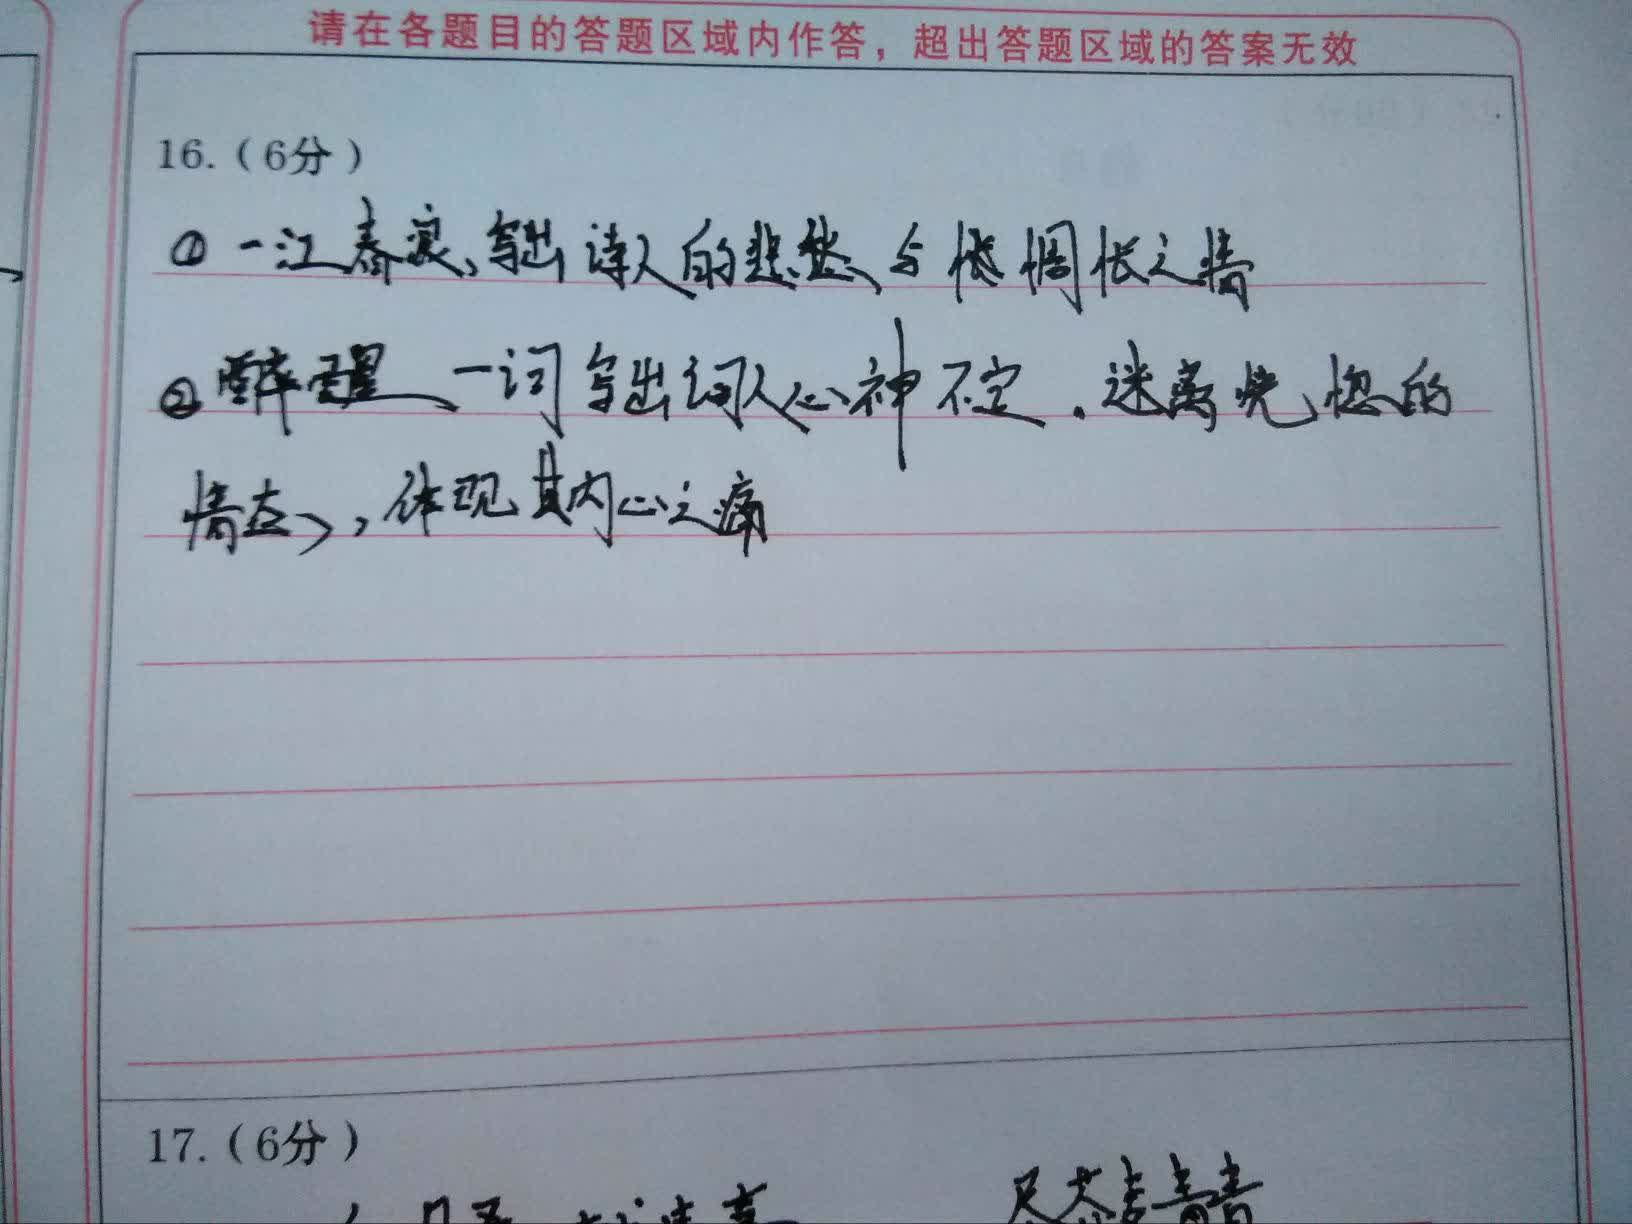 请在各题目的答题区域内作答，超出答题区域的答案无效
16.（6分）
①一江春浪、写出诗人的悲愁、与惆怅之情
②醉醒、一词写出词人心神不定．迷离恍惚的
情态，体现其内心之痛
17.（6分）